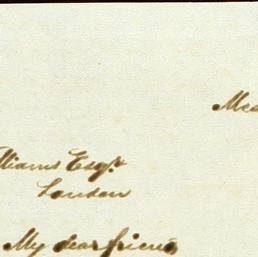 Mea
lliams Esqr
London
My dear friend